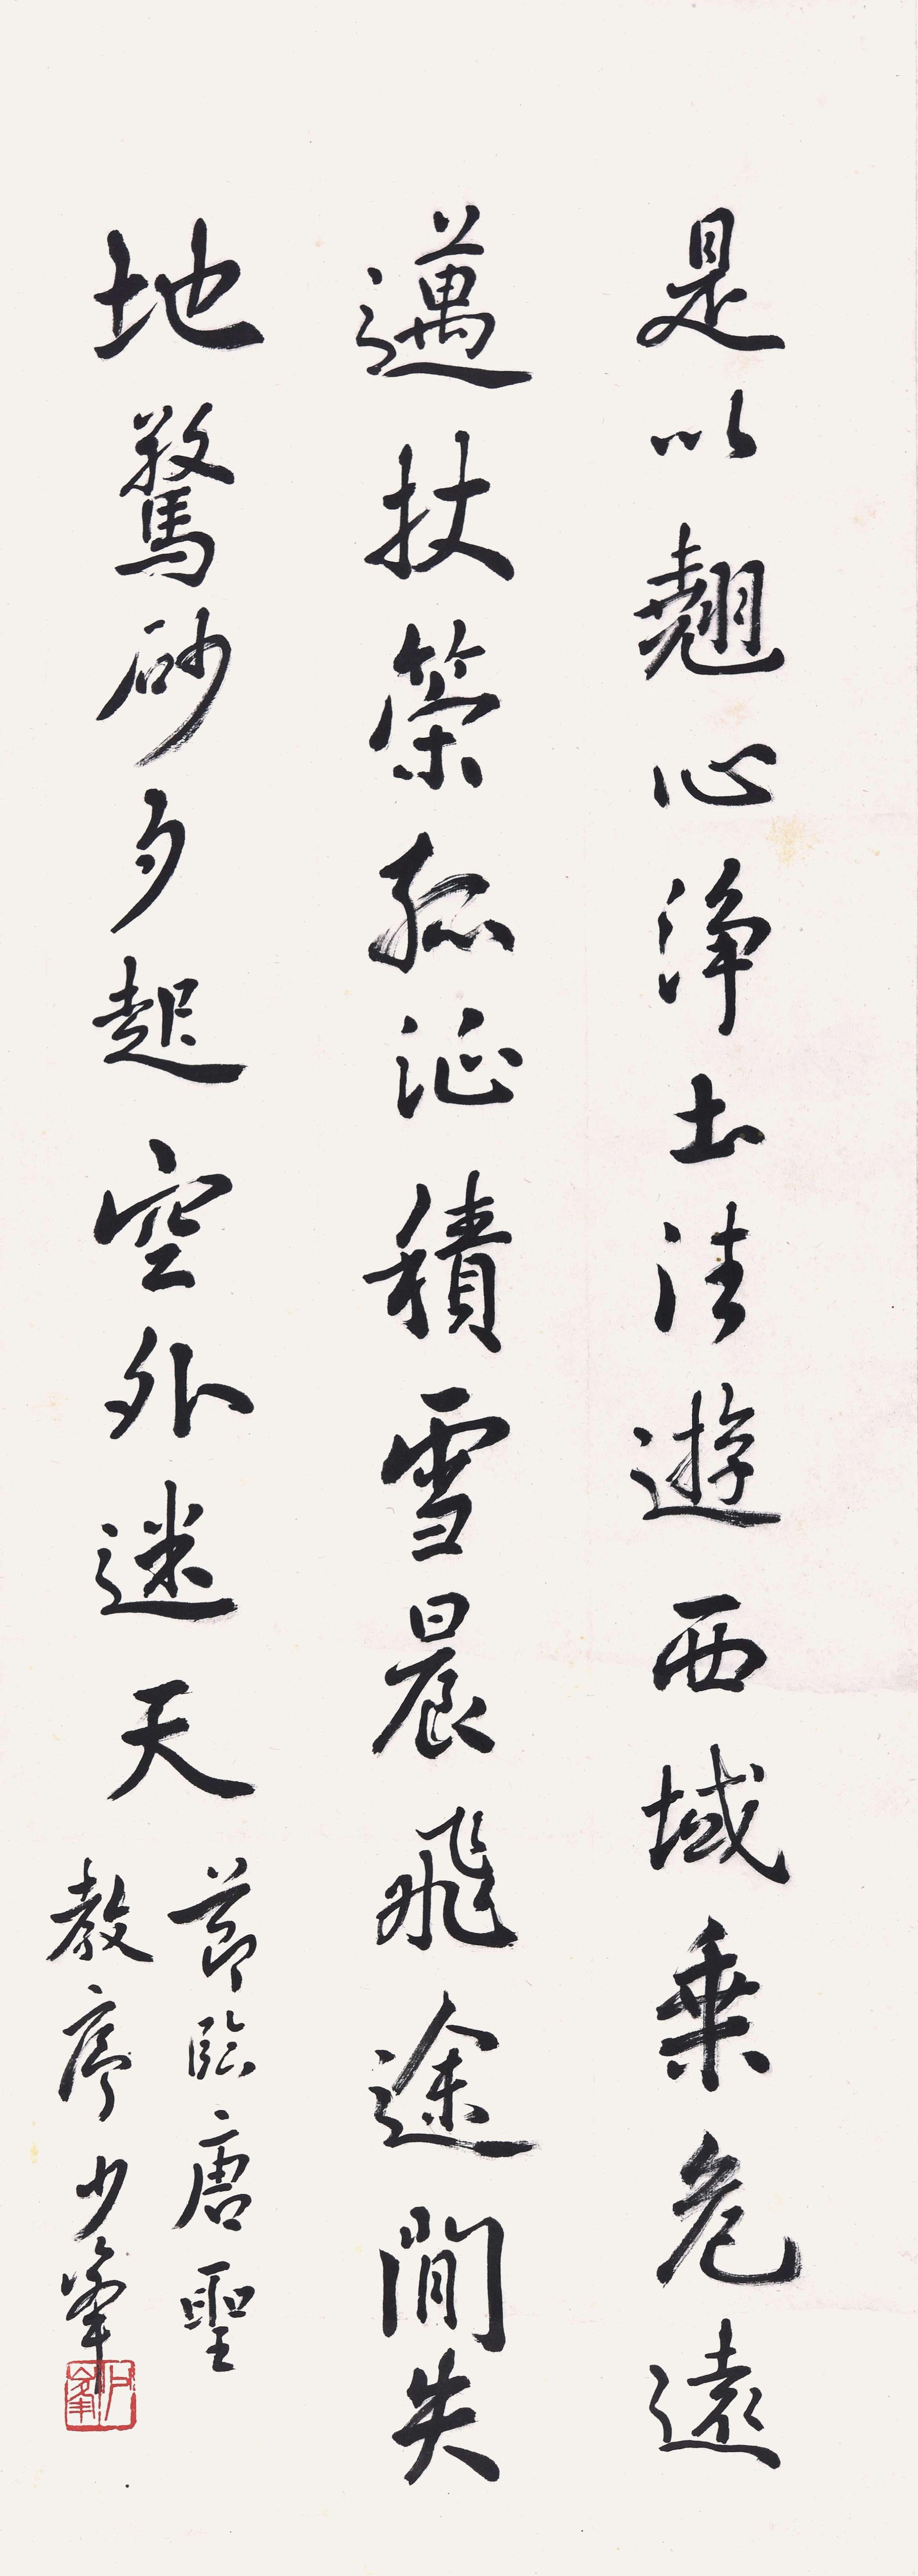 是以翹心淨土往遊西域乗危遠
邁杖策孤征積雪晨飛途間失
地驚砂夕起空外迷天
節臨唐聖
教序少峯